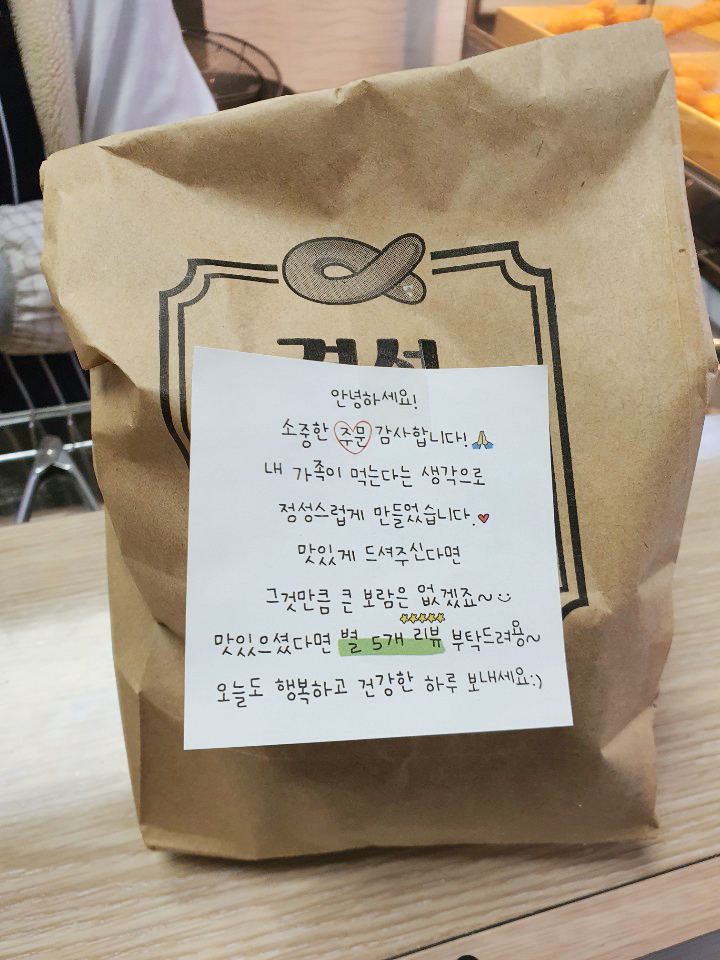 안녕하세요!
소중한 주문 감사합니다!
내 가족이 먹는다는 생각으로
정성스럽게 만들었습니다.
맛있게 드셔주신다면
그것만큼 큰 보람은 없겠죠~
맛있으셨다면 별 5개 리뷰 부탁드려용~
오늘도 행복하고 건강한 하루 보내세요:)